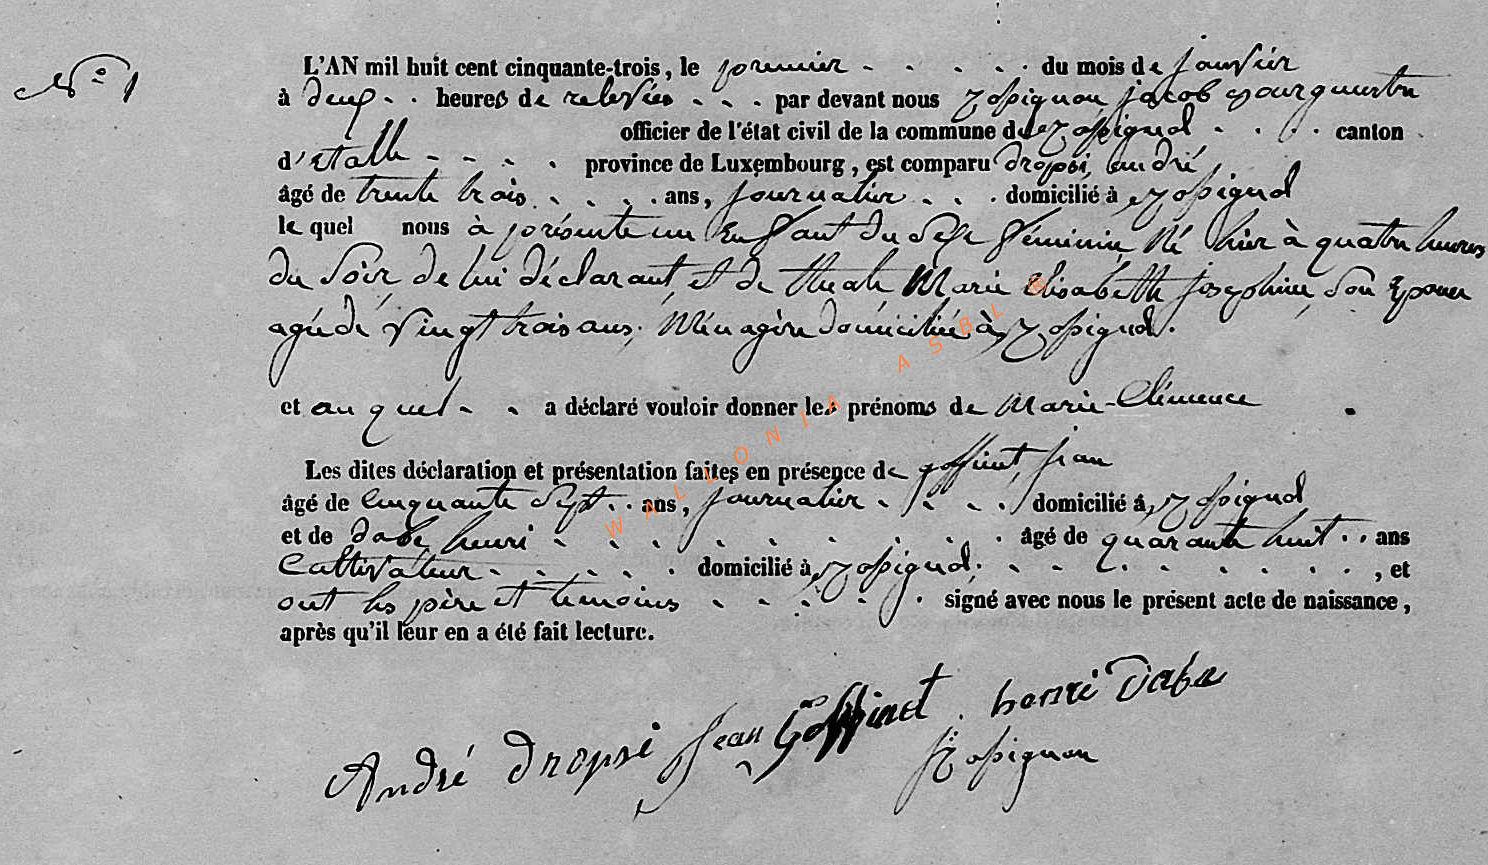 N° 1
L'AN mil huit cent cinquante-trois, le premier . . . . . du mois de janvier
à deux . . heures de relevée . . . par devant nous Rossignon jacob Bourgmestre
officier de l'état civil de la commune de Rossignol . . . . canton
d'Etalle . . . . province de Luxembourg, est comparu dropsi, andré
âgé de trente trois . . . . ans, journalier . . . domicilié à Rossignol
le quel nous à présenté un Enfant du Sexe féminin, Né hier à quatre heures
du Soir de lui déclarant, et de Marie Elisabeth josephine, Son Epouse
agée de vingt trois ans, Ménagère domiciliée à Rossignol.
et au quel . . a déclaré vouloir donner les prénoms de Marie-Clémence
Les dites déclaration et présentation faites en présence de goffinet jean
âgé de Cinquante Sept . . ans, journalier . . . . domicilié à Rossignol
et de dabe henri . . . . . . . . . âgé de quarante huit . . ans
Cultivateur . . . . . domicilié à Rossignol . . . . . . . . , et
ont les père et temoins . . . . . signé avec nous le présent acte de naissance,
après qu'il leur en a été fait lecture.
André Dropsi Jean Goffinet henri Dabe
Rossignon
WALLONIA ASBL ®